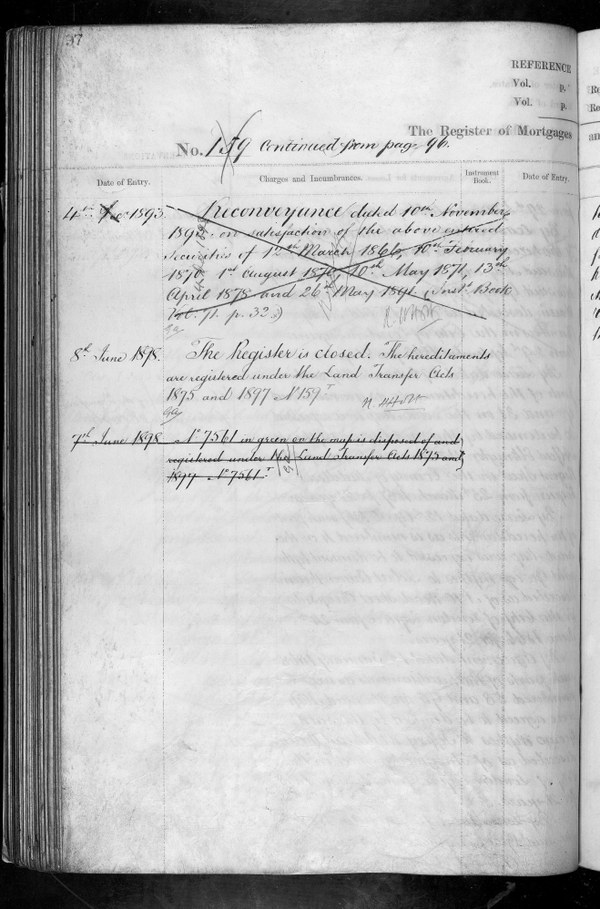 37
REFERENCE
Vol. p.
Vol. p.
The Register of Mortgages
No. 159 Continued from page 96.
Date of Entry. Charges and Incumbrances. Instrument Book. Date of Entry.
4th Dec 1893 Reconveyance dated 10th November
1892 on satisfaction of the above entered
Securities of 12th March 1866, 10th February
1870, 1st August 1870, 10th May 1871, 13th
April 1878 and 26th May 1891. (Inst. Book
Vol. 71. p. 323)
8th June 1898. The Register is closed. The hereditaments
are registered under the Land Transfer Acts
1875 and 1897 No 159 T
7th June 1898 No 7561 in green on the map is disposed of and
registered under the Land Transfer Acts 1875 and
1897 No 7561 T